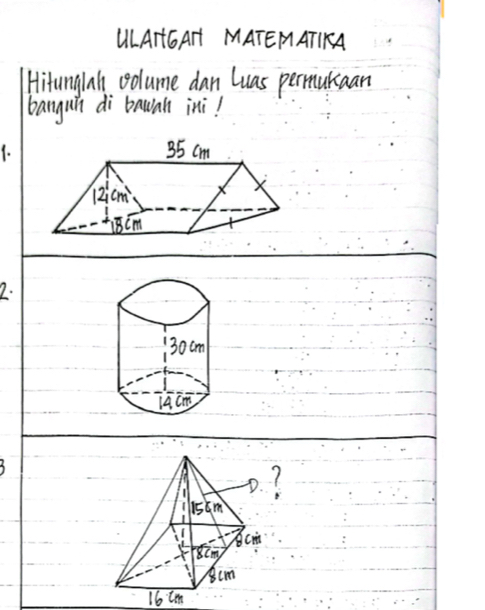 ULANGAN MATEMATIKA
Hitunglah volume dan Luas permukaan
bangun di bawah ini !
1.
35 cm
12 cm
18 cm
2.
30 cm
14 cm
3
?
15 cm
8 cm
8 cm
8 cm
16 cm